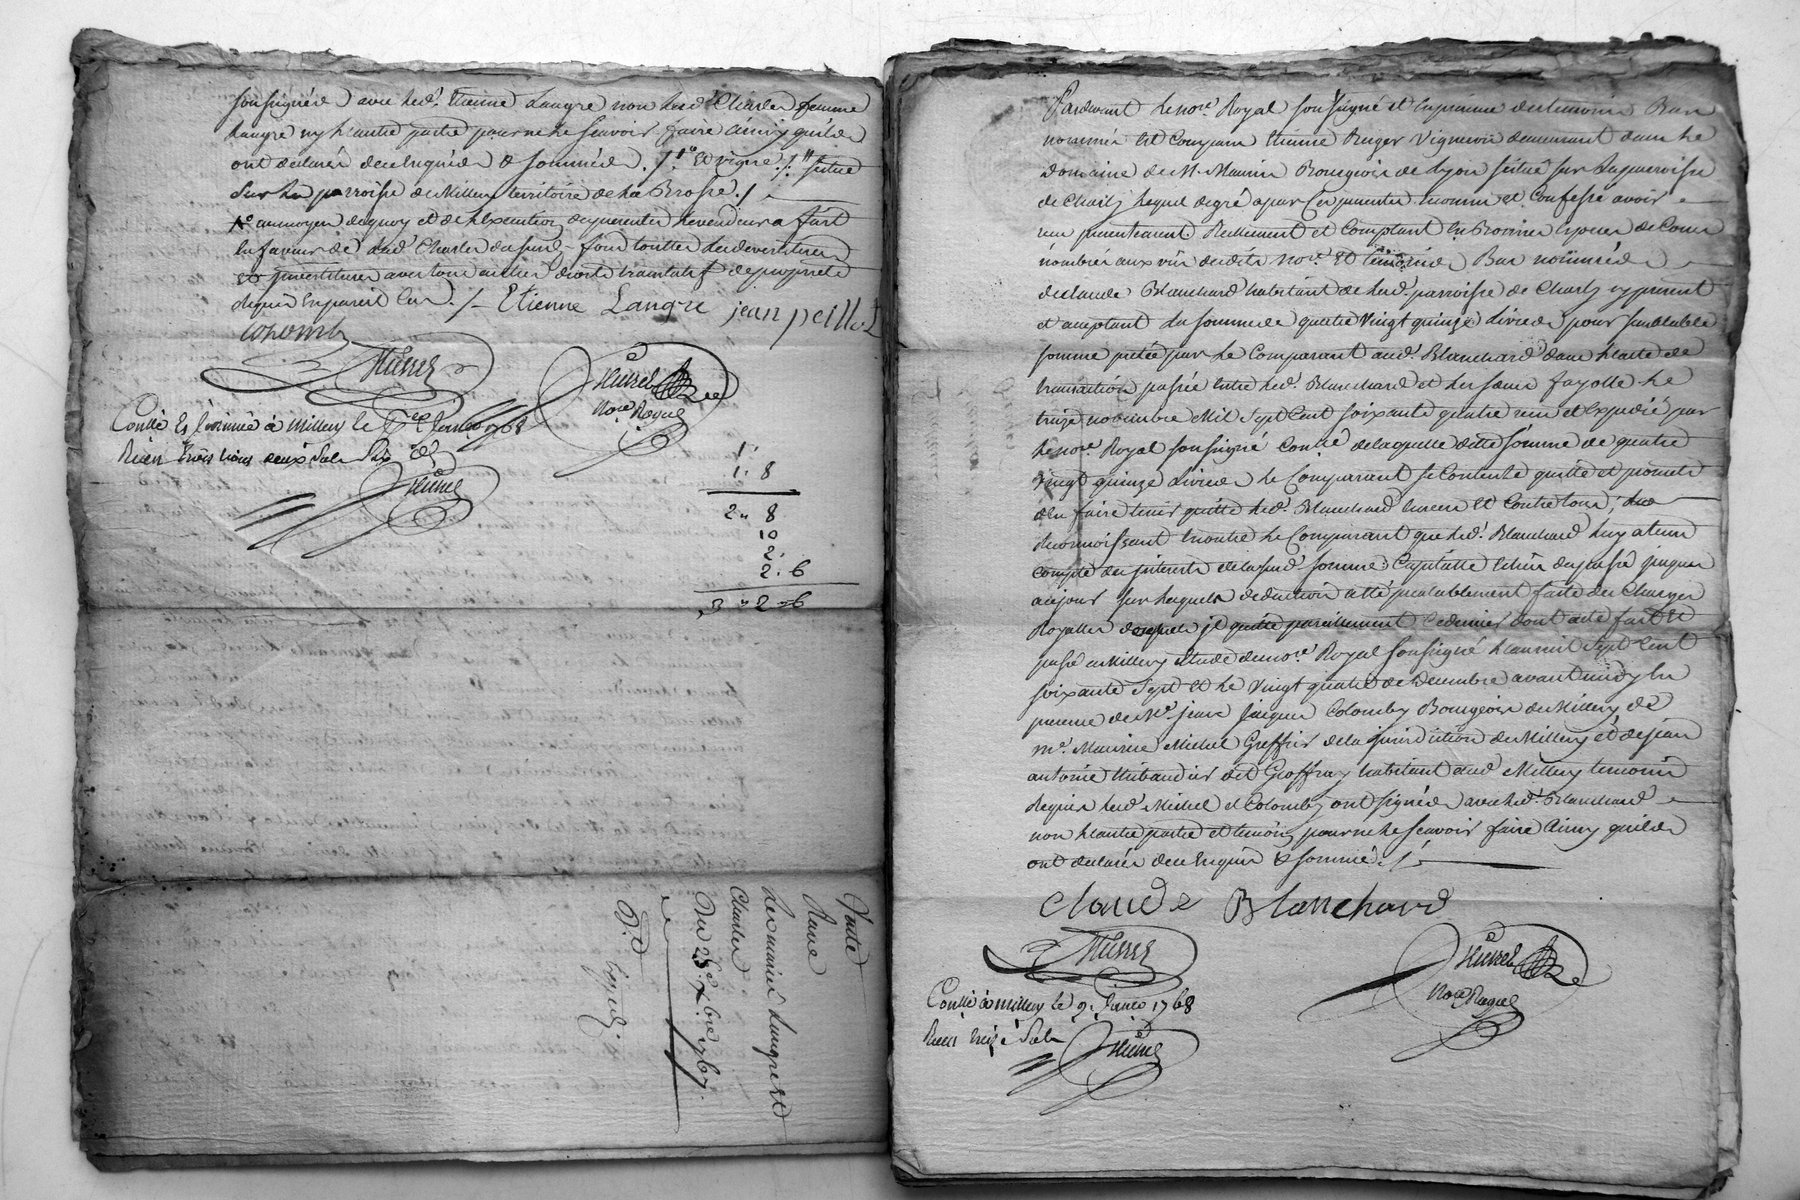 soussignés avec led. Etienne Langre non lesd. Charles femme
Langre ny l'autre partie pour ne le sçavoir faire ainsy qu'ils
ont déclaré de ce enquis & sommés . /. 1.o et vigne /. " située
sur la parroisse de Millery territoire de la Brosse . /.
au moyen de quoy et de l'execution des presentes le vendeur a fait
en faveur de lad. Charles
investiture avec tout autres droits translatif de proprieté
requis en pareil cas . /. Etienne Langre jean peillot
colomb
Michel
Michel
No.re Royal
Conllé Et insinué à millery le Janvier 1768
Reçu trois livres deux sols six d.
Michel
1"
1" 8
2" 8
10
2"
2. 6
3 " 2 " 6
Vente
Rave
les mariés Langre et
Charles
Du 28e Xbre 1767.
Exped.
Pardevant le no.re Royal soussigné et en presence des temoins Bas
nommés est comparu Etienne Ruger Vigneron demeurant dans le
Domaine de M. Maurin Bourgeois de Lyon situé sur la parroisse
de Charly lequel de gré a par ces presentes reconnu et Confessé avoir
reçu presentement Reellement et Comptant en Bonnes especes de Cours
nombrées aux vüe desdits no.re et temoins Bas nommés
de Claude Blanchard habitant de lad. parroisse de Charly cy present
et acceptant la somme de quatre Vingt quinze Livres pour semblable
somme pretée par le Comparant aud. Blanchard dans l'acte de
transaction passée entre led. Blanchard et les sœur fayolle le
treize novembre Mil Sept Cent soixante quatre reçu et Expedié par
le no.re Royal soussigné Con.lé de laquelle ditte somme de quatre
vingt quinze Livres le Comparant se Contente quitte et promet
d'en faire tenir quitte led. Blanchard envers et Contre tous;
Reconnoissant en outre le Comparant que led. Blanchard luy a tenu
compte des interets de la susd. somme Capitalle
aujour sur lesquels deduction a été prealablement faite des Charges
Royalles desquels il quitte pareillement ce dernier dont acte fait et
passé a Millery Etude de no.re Royal soussigné l'an mil Sept Cent
soixante Sept et le Vingt quatre de Decembre avant midy En
presence de M.r jean Jacques Colomby Bourgeois de Millery de
m.e Maurice Michel Greffier de la jurisdiction de Millery et de jean
antoine thibaudier dit Geoffray habitant aud. Millery temoins
Requis lesd. Michel et Colomby ont signés avec led. Blanchard
non l'autre partie et temoin pour ne le sçavoir faire Ainsy qu'ils
ont déclarés de ce enquis & sommé . /.
Claude Blanchard
Michel
Michel
No.re Royal
Conllé à millery le 9. Janvier 1768
Reçu treize Sols
Michel